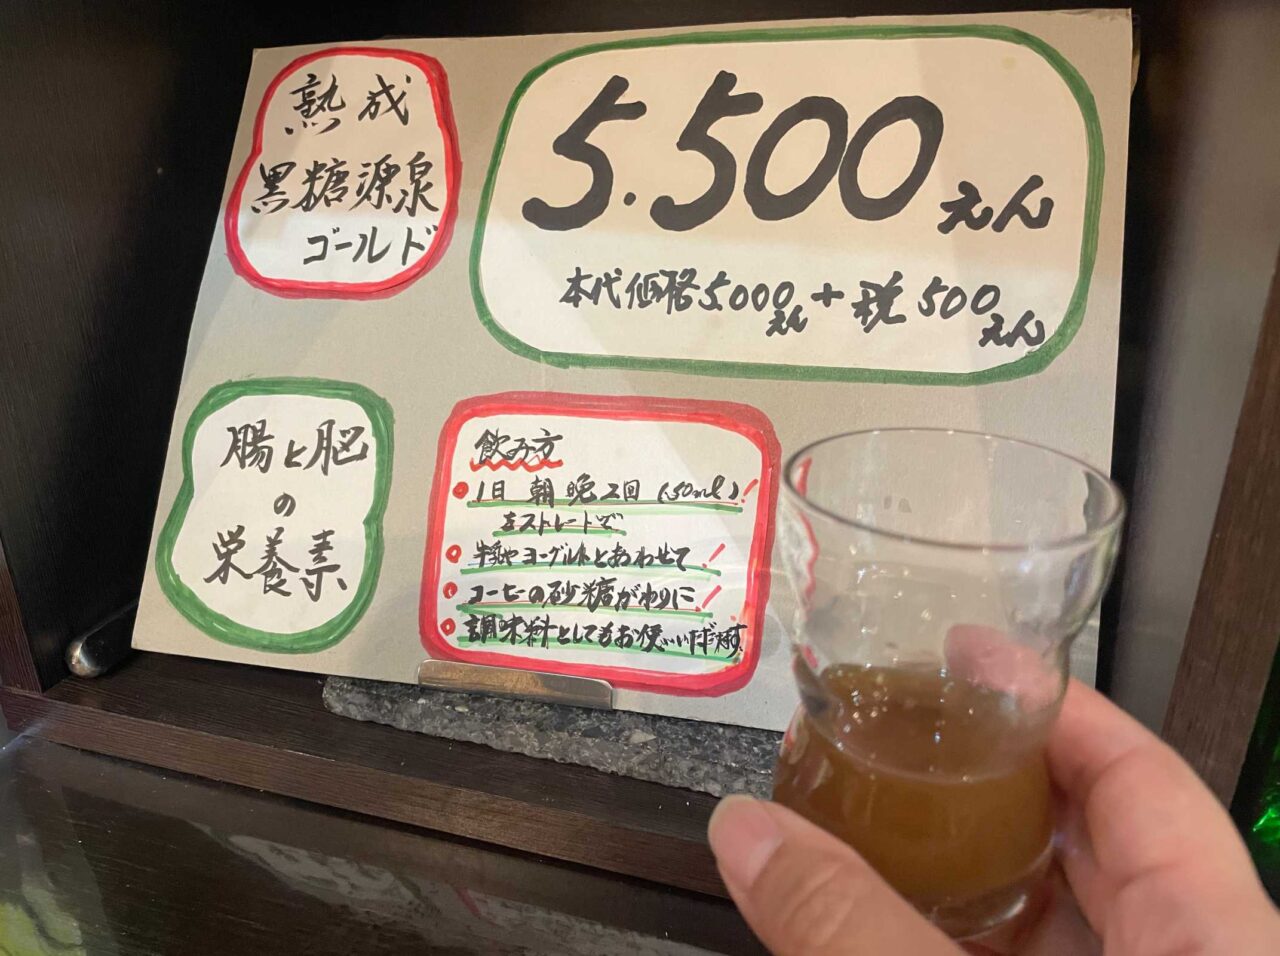 熟成
黒糖源泉
ゴールド
5.500えん
本代価格5000えん+税500えん
腸と脳
の
栄養素
飲み方
1日 朝 晩 2回 (50ml)!
をストレートで
牛乳やヨーグルトとあわせて!
コーヒーの砂糖がわりに!
調味料としてもお使いいただけます。